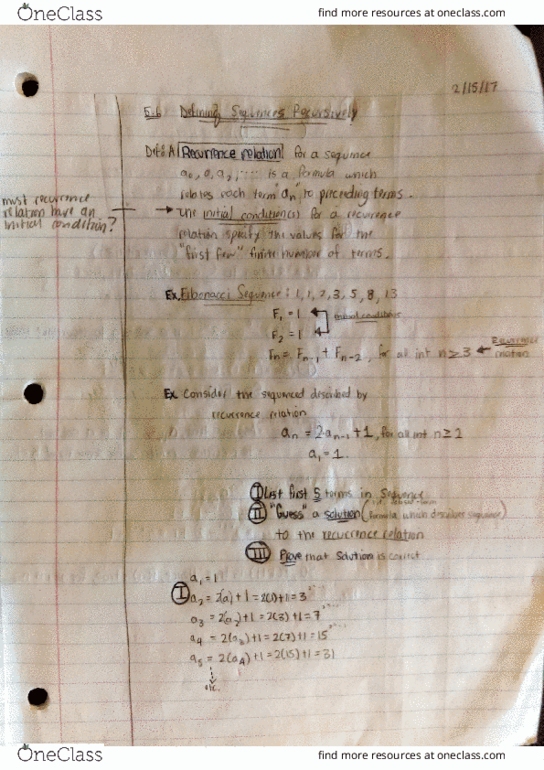 OneClass
find more resources at oneclass.com
2/15/17
5.6 Defining Sequences Recursively
Def: A Recurrence relation for a sequence
a₀, a, a₂, .... is a formula which
relates each term "aₙ" to preceeding terms.
must recurrence
relation have an
initial condition?
→ The initial condition(s) for a recurence
relation specify the values for the
"first few" finite number of terms.
Ex. Fibonacci Sequence: 1, 1, 2, 3, 5, 8, 13
F₁ = 1 initial conditions
F₂ = 1
Fₙ = Fₙ₋₁ + Fₙ₋₂, for all int n ≥ 3 ← relation
Ex. Consider the sequenced described by
recurrence relation
aₙ = 2·aₙ₋₁ + 1, for all int n ≥ 2
a₁ = 1.
I List first 5 terms in Sequence
II "Guess" a solution (formula which describes sequence)
to the recurrence relation
III Prove that Solution is correct
a₁ = 1
I a₂ = 2(a) + 1 = 2(1) + 1 = 3
a₃ = 2(a₂) + 1 = 2(3) + 1 = 7
a₄ = 2(a₃) + 1 = 2(7) + 1 = 15
a₅ = 2(a₄) + 1 = 2(15) + 1 = 31
etc.
OneClass
find more resources at oneclass.com